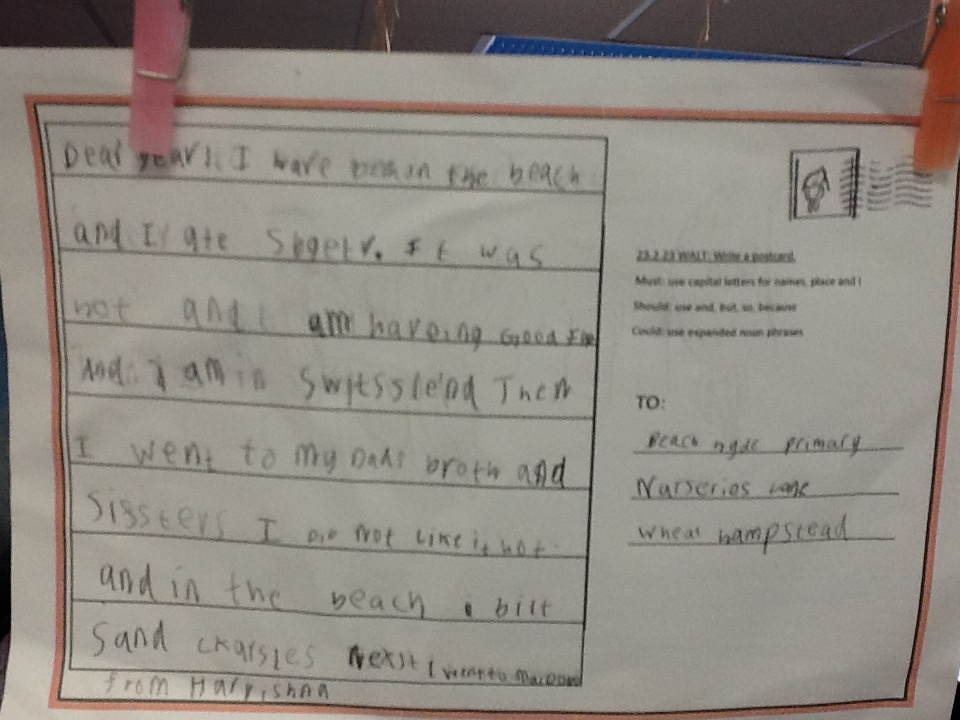 Dear year 1, I have been in the beach
and I ate Shgetv. It was
hot and I am haveing Good time
and I am in Switsslend Then
I went to my Dads broth and
Sissters I DiD not Like it hot
and in the beach i bilt
Sand ckarsles Next I went to
from Harpishna
23.2.23 WALT: Write a postcard.
Must: use capital letters for names, place and I
Should: use and, but, so, because
Could: use expanded noun phrases
TO:
Beach hyde primary
Nurseries Lane
Wheat hampstead